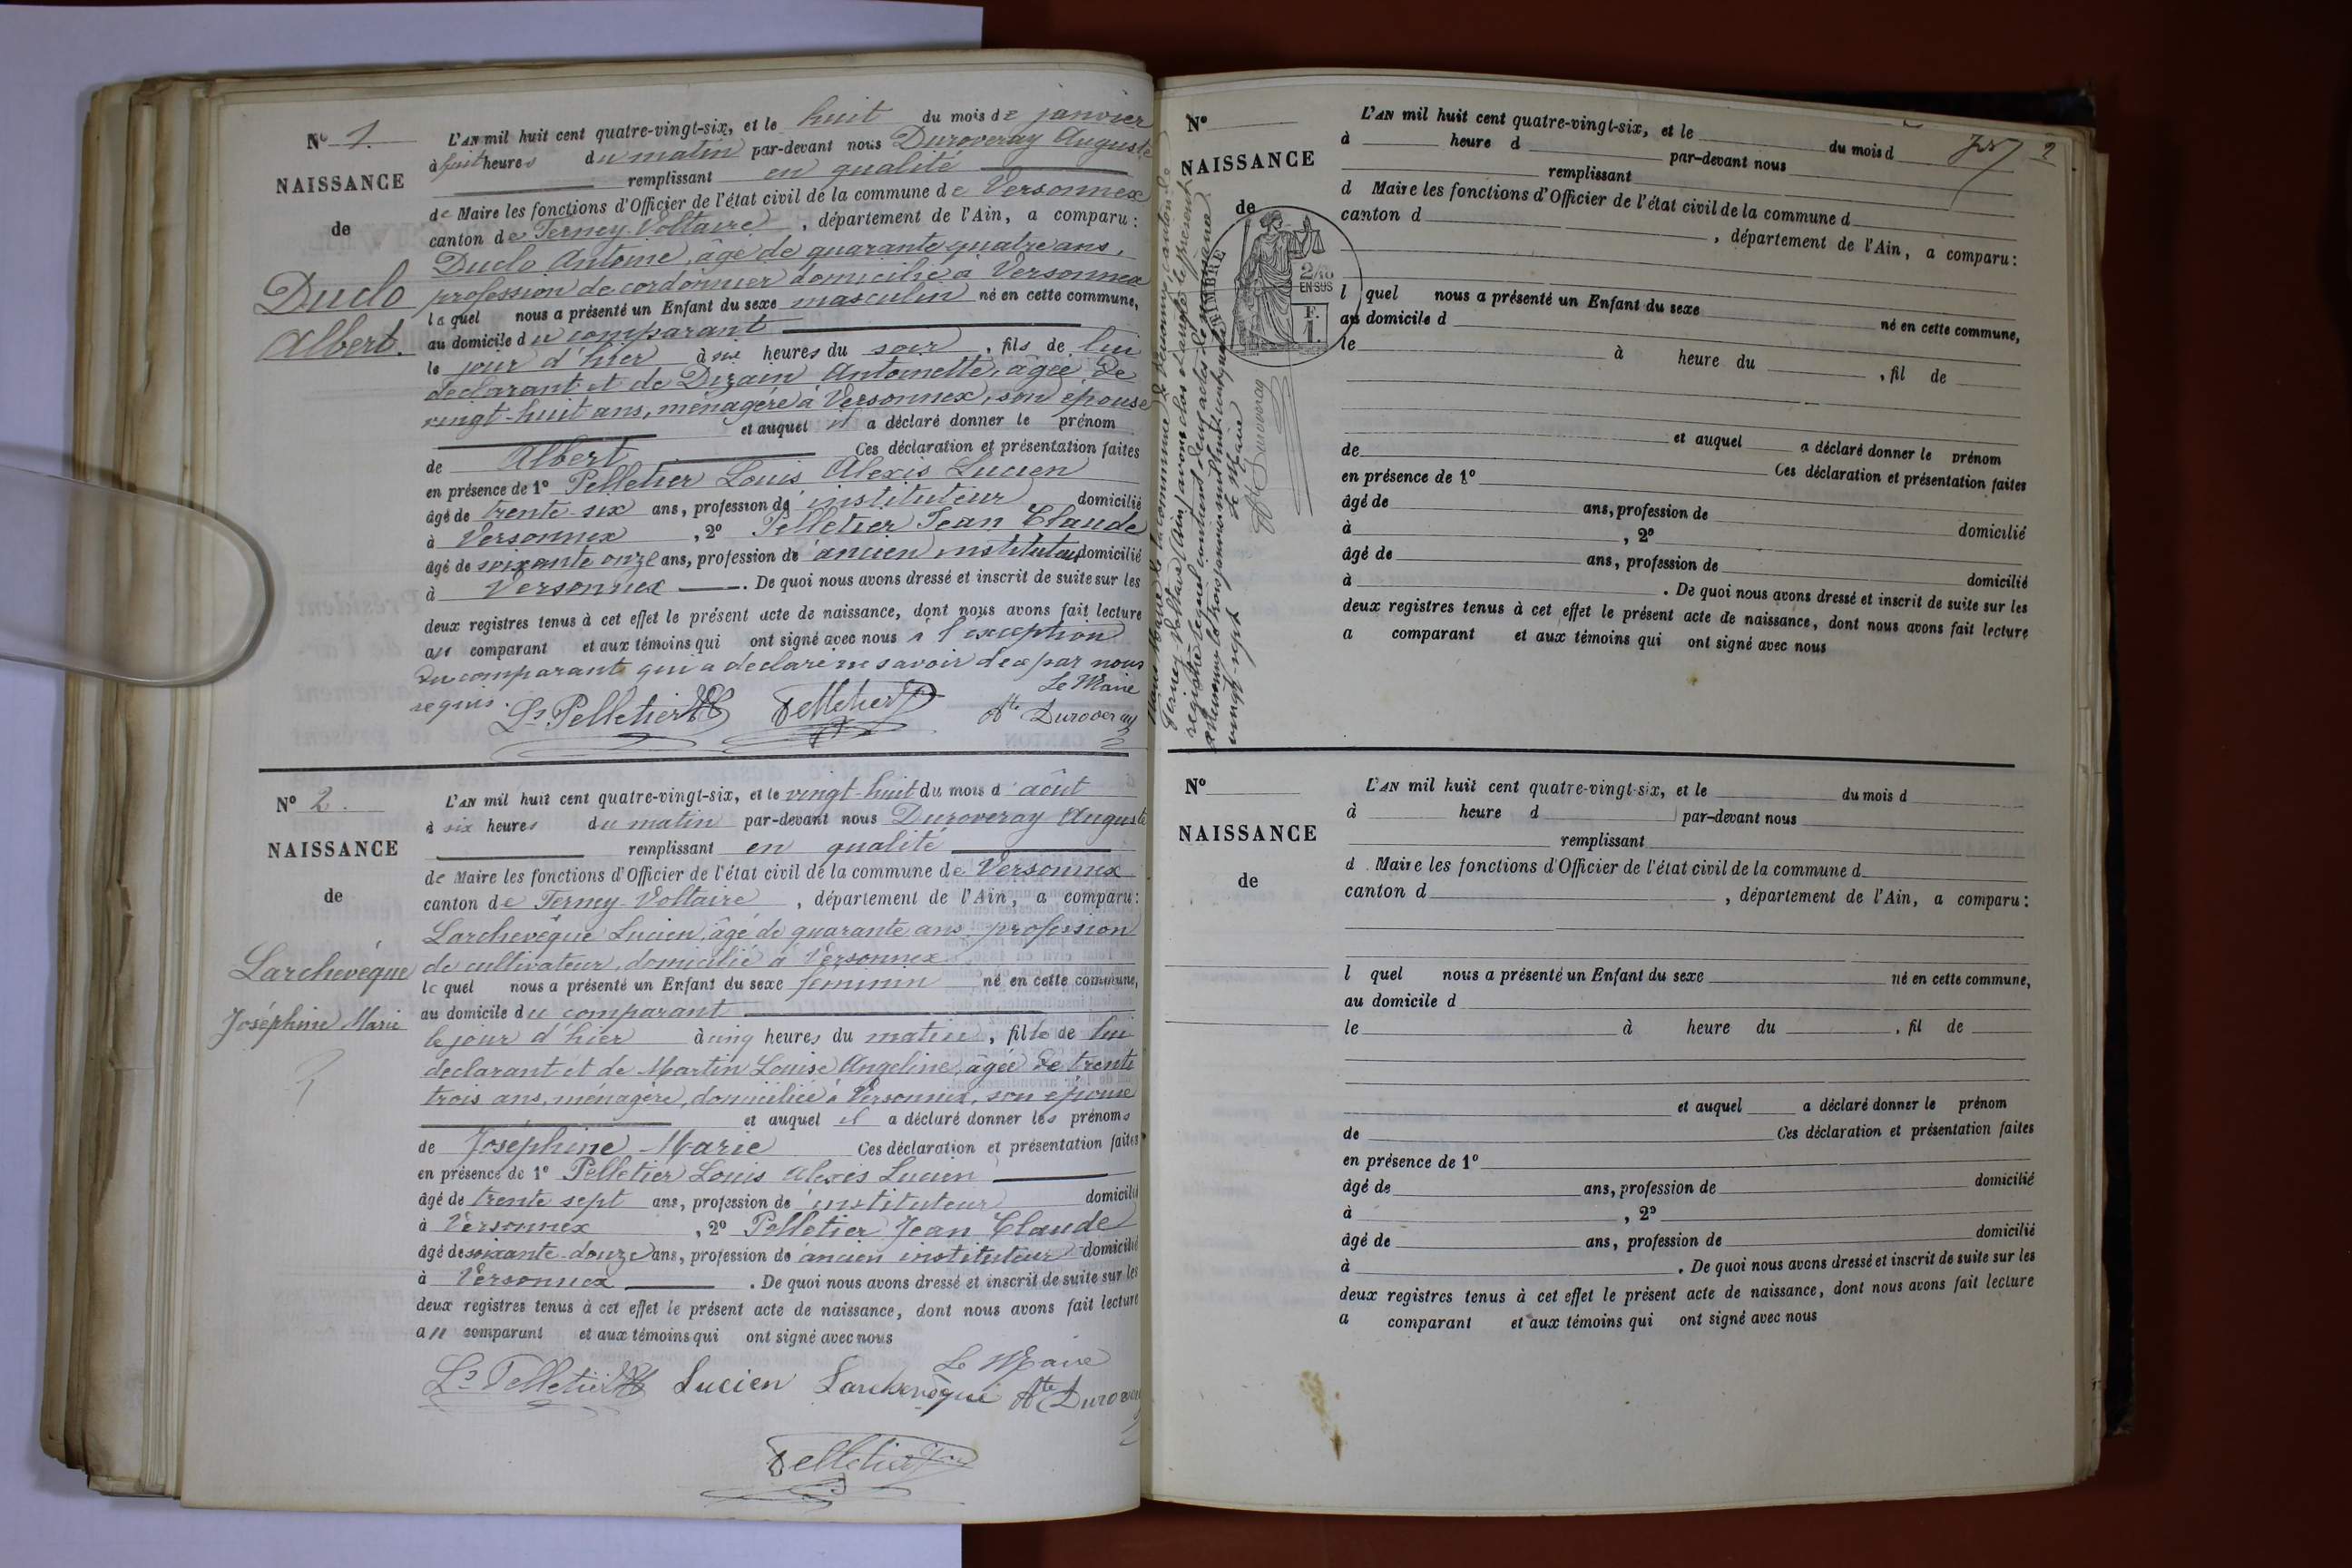 N° 1.
NAISSANCE
de
Duclo
Albert.
L'AN mil huit cent quatre-vingt-six, et le huit du mois de janvier
à huit heures du matin par-devant nous Duroveray Auguste
remplissant en qualité
de Maire les fonctions d'Officier de l'état civil de la commune de Versonnex
canton de Ferney-Voltaire, département de l'Ain, a comparu:
Duclo Antoine, âgé de quarante quatre ans,
profession de cordonnier domicilié à Versonnex
lequel nous a présenté un Enfant du sexe masculin né en cette commune,
au domicile du comparant
le jour d'hier à six heures du soir, fils de lui
déclarant et de Dizain Antoinette, âgée de
vingt-huit ans, ménagère à Versonnex, son épouse
et auquel il a déclaré donner le prénom
de Albert Ces déclaration et présentation faites
en présence de 1° Pelletier Louis Alexis Lucien
âgé de trente-six ans, profession de instituteur domicilié
à Versonnex, 2° Pelletier Jean Claude
âgé de soixante onze ans, profession de ancien instituteur domicilié
à Versonnex. De quoi nous avons dressé et inscrit de suite sur les
deux registres tenus à cet effet le présent acte de naissance, dont nous avons fait lecture
au comparant et aux témoins qui ont signé avec nous à l'exception
du comparant qui a déclaré ne savoir de ce par nous
requis.
Le Maire
Ls Pelletier Pelletier Ate Duroveray
N° 2.
NAISSANCE
de
Larchevêque
Joséphine Marie
L'AN mil huit cent quatre-vingt-six, et le vingt-huit du mois d'août
à six heures du matin par-devant nous Duroveray Auguste
remplissant en qualité
de Maire les fonctions d'Officier de l'état civil de la commune de Versonnex
canton de Ferney-Voltaire, département de l'Ain, a comparu:
Larchevêque Lucien, âgé de quarante ans, profession
de cultivateur, domicilié à Versonnex
lequel nous a présenté un Enfant du sexe féminin né en cette commune,
au domicile du comparant
le jour d'hier à cinq heures du matin, fille de lui
déclarant et de Martin Louise Angeline, âgée de trente
trois ans, ménagère, domiciliée à Versonnex, son épouse
et auquel il a déclaré donner les prénoms
de Joséphine Marie Ces déclaration et présentation faites
en présence de 1° Pelletier Louis Alexis Lucien
âgé de trente sept ans, profession de instituteur domicilié
à Versonnex, 2° Pelletier Jean Claude
âgé de soixante-douze ans, profession de ancien instituteur domicilié
à Versonnex. De quoi nous avons dressé et inscrit de suite sur les
deux registres tenus à cet effet le présent acte de naissance, dont nous avons fait lecture
au comparant et aux témoins qui ont signé avec nous
Le Maire
Ls Pelletier Lucien Larchevêque Ate Duroveray
Pelletier
2
N°
NAISSANCE
de
TIMBRE
2/10
EN SUS
F.
1.
Nous Maire de la commune de Versonnex, canton de
Ferney-Voltaire (Ain) avons clos et arrêté le présent
registre lequel contient deux actes de
à Versonnex le trois janvier mil huit cent quatre
vingt-sept
Le Maire
Ate Duroveray
L'AN mil huit cent quatre-vingt-six, et le du mois d
à heure d par-devant nous
remplissant
d Maire les fonctions d'Officier de l'état civil de la commune d
canton d , département de l'Ain, a comparu:
l quel nous a présenté un Enfant du sexe né en cette commune,
au domicile d
le à heure du , fil de
et auquel a déclaré donner le prénom
de Ces déclaration et présentation faites
en présence de 1°
âgé de ans, profession de
à , 2° domicilié
âgé de ans, profession de
à . De quoi nous avons dressé et inscrit de suite sur les domicilié
deux registres tenus à cet effet le présent acte de naissance, dont nous avons fait lecture
a comparant et aux témoins qui ont signé avec nous
N°
NAISSANCE
de
L'AN mil huit cent quatre-vingt-six, et le du mois d
à heure d par-devant nous
remplissant
d Maire les fonctions d'Officier de l'état civil de la commune d
canton d , département de l'Ain, a comparu:
l quel nous a présenté un Enfant du sexe né en cette commune,
au domicile d
le à heure du , fil de
et auquel a déclaré donner le prénom
de Ces déclaration et présentation faites
en présence de 1°
âgé de ans, profession de domicilié
à , 2°
âgé de ans, profession de domicilié
à . De quoi nous avons dressé et inscrit de suite sur les
deux registres tenus à cet effet le présent acte de naissance, dont nous avons fait lecture
a comparant et aux témoins qui ont signé avec nous